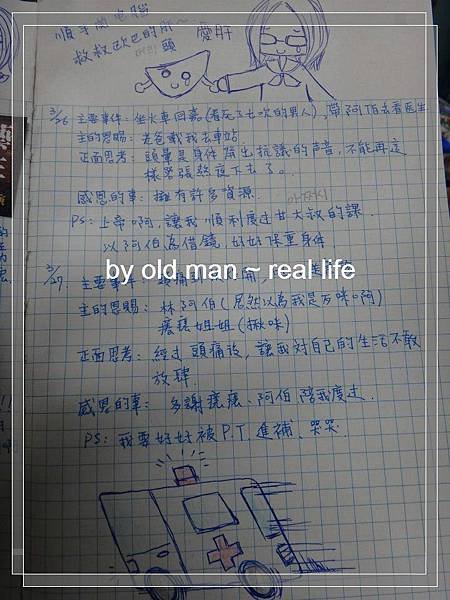 順手關電腦
救救歐巴的肝~
愛肝
頭
3/26 主要事件: 坐火車回嘉(看死了七次的男人), 帶阿伯去看医生
主的恩賜: 老爸載我去車站
正面思考: 頭暈是身体發出抗議的声音, 不能再這
樣緊張熬夜下去了。
感恩的事: 擁有許多資源.
PS: 上帝啊, 讓我順利度過甘大叔的課.
以阿伯為借鏡, 好好保重身件
by old man ~ real life
3/27 主要事件:
主的恩賜: 林阿伯(居然以為我是万味口阿)
姐姐(揪咪)
正面思考: 經過頭痛後, 讓我对自己的生活不敢
放肆.
感恩的事: 多謝 阿伯, 陪我度过.
PS: 我要好好被P.T. 進補, 哭哭.